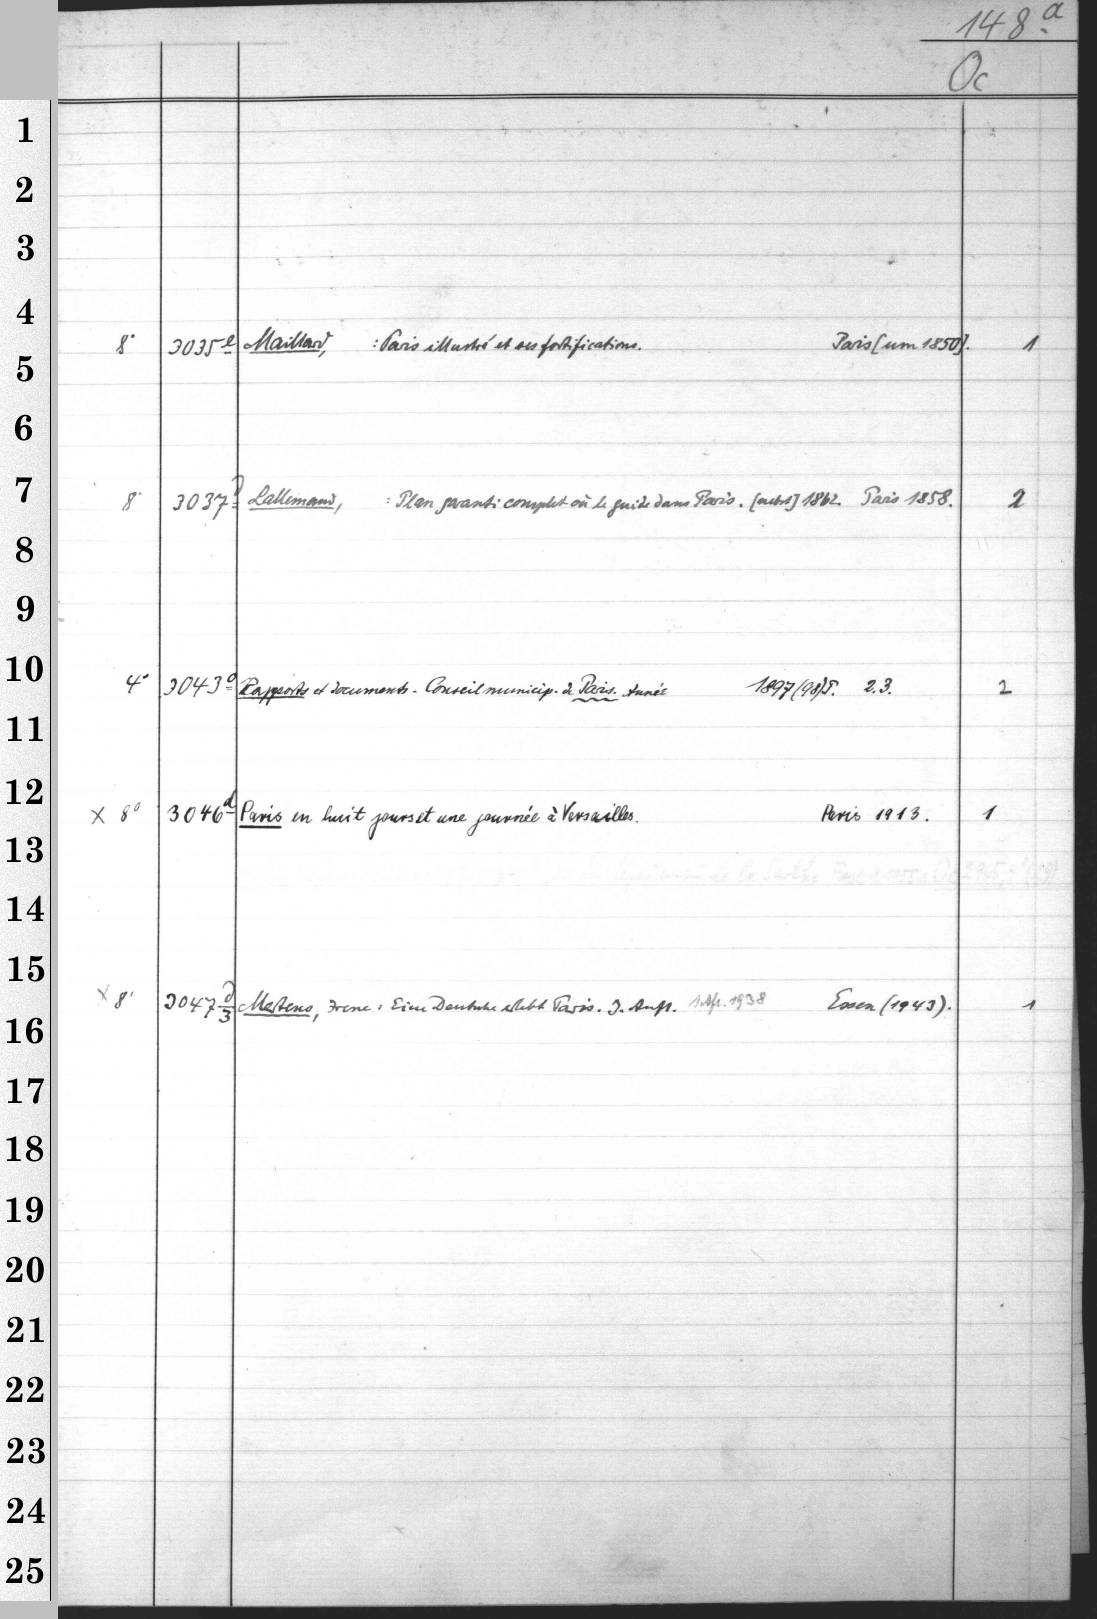 148a
Oc
1
2
3
4
8° 3035e Maillard, : Paris illustré et ses fortifications. Paris [um 1850]. 1
5
6
7
8° 3037 Lallemand, : Plan garanti complet où le guide dans Paris. 1862. Paris 1858. 2
8
9
10
4° 3043a Rapports et documents - Conseil municip. de Paris. Année 1897(98)T. 2.3. 2
11
12
X 8° 3046d Paris en huit jours et une journée à Versailles. Paris 1913. 1
13
14
15
X 8° 3047 d/3 Mertens, Irene: Eine Deutsche erlebt Paris. 3. Aufl. 1. Afl. 1938 Essen (1943). 1
16
17
18
19
20
21
22
23
24
25